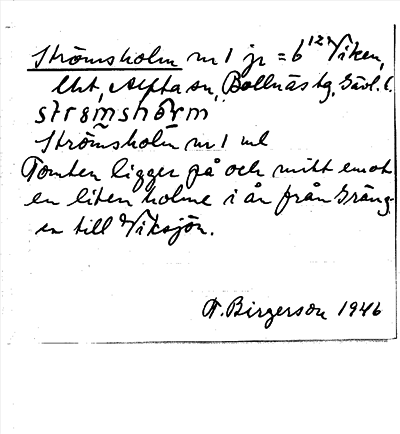 Strömsholm nr 1 jr = 6 12 Viken,
Alfta sn, Bollnäs tg, Gävl. l.
Strömsholm nr 1 ml
Tomten ligger på och mitt emot
en liten holme i ån från Gräng-
en till Viksjön.
F. Birgerson 1946